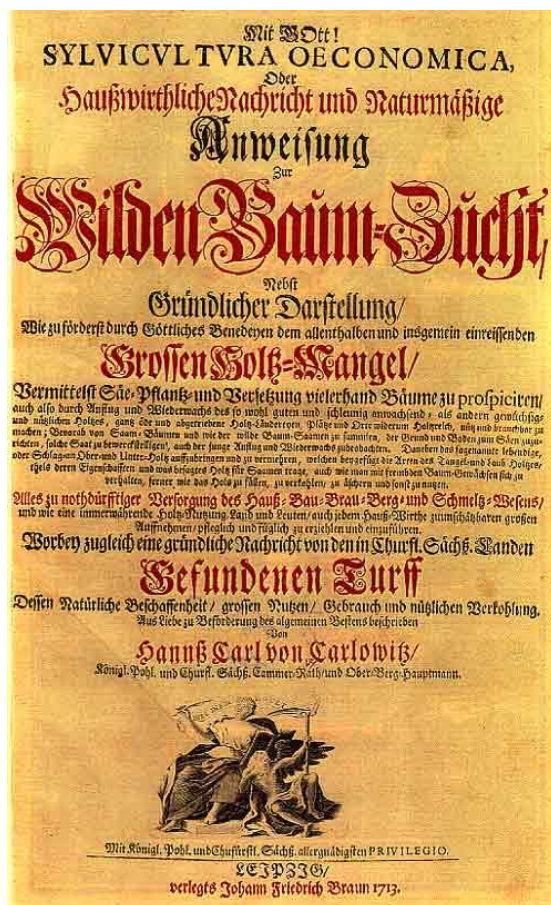 Mit GOtt!
SYLVICVLTVRA OECONOMICA,
Oder
Haußwirthliche Nachricht und Naturmäßige
Anweisung
Zur
Wilden Baum-Zucht/
Nebst
Gründlicher Darstellung/
Wie zu förderst durch Göttliches Benedeyen dem allenthalben und insgemein einreissenden
Grossen Holtz-Mangel/
Vermittelst Säe-Pflantz- und Versetzung vielerhand Bäume zu prospiciren/
auch also durch Anflug und Wiederwachs des so wohl guten und schleunig anwachsend- als andern gewüchsig-
und nützlichen Holtzes, gantz öde und abgetriebene Holtz-Ländereyen, Plätze und Orte wiederum Holtzreich, nütz und brauchbar zu
machen; Bevorab von Saam-Bäumen und wie der wilde Baum-Saamen zu sammlen, der Grund und Boden zum Säen zuzu-
richten, solche Saat zu bewerckstelligen, auch der junge Anflug und Wiederwachs zu beobachten. Daneben das sogenannte lebendige,
oder Schlag-an Ober- und Unter-Holtz aufzubringen und zu vermehren, welchen beygefügt die Arten des Tangel- und Laub-Holtzes,
theils deren Eigenschafften und was besagtes Holtz für Saamen trage, auch wie man mit frembden Baum-Gewächsen sich zu
verhalten, ferner wie das Holtz zu fällen, zu verkohlen, zu äschern und sonst zu nutzen.
Alles zu nothdürfftiger Versorgung des Hauß-Bau-Brau-Berg- und Schmeltz-Wesens/
und wie eine immerwährende Holtz-Nutzung Land und Leuten/ auch jedem Hauß-Wirthe zu unschätzbaren großen
Aufnehmen/ pfleglich und füglich zu erziehlen und einzuführen.
Worbey zugleich eine gründliche Nachricht von den in Churfl. Sächß. Landen
Gefundenen Turff
Dessen Natürliche Beschaffenheit/ grossen Nutzen/ Gebrauch und nützlichen Verkohlung.
Aus Liebe zu Beförderung des algemeinen Bestens beschrieben
Von
Hannß Carl von Carlowitz/
Königl. Pohl. und Churfl. Sächß. Cammer-Rath/ und Ober-Berg-Hauptmann.
Mit Königl. Pohl. und Chufürstl. Sächß. allergnädigsten PRIVILEGIO.
LEIPZIG/
verlegts Johann Friedrich Braun 1713.